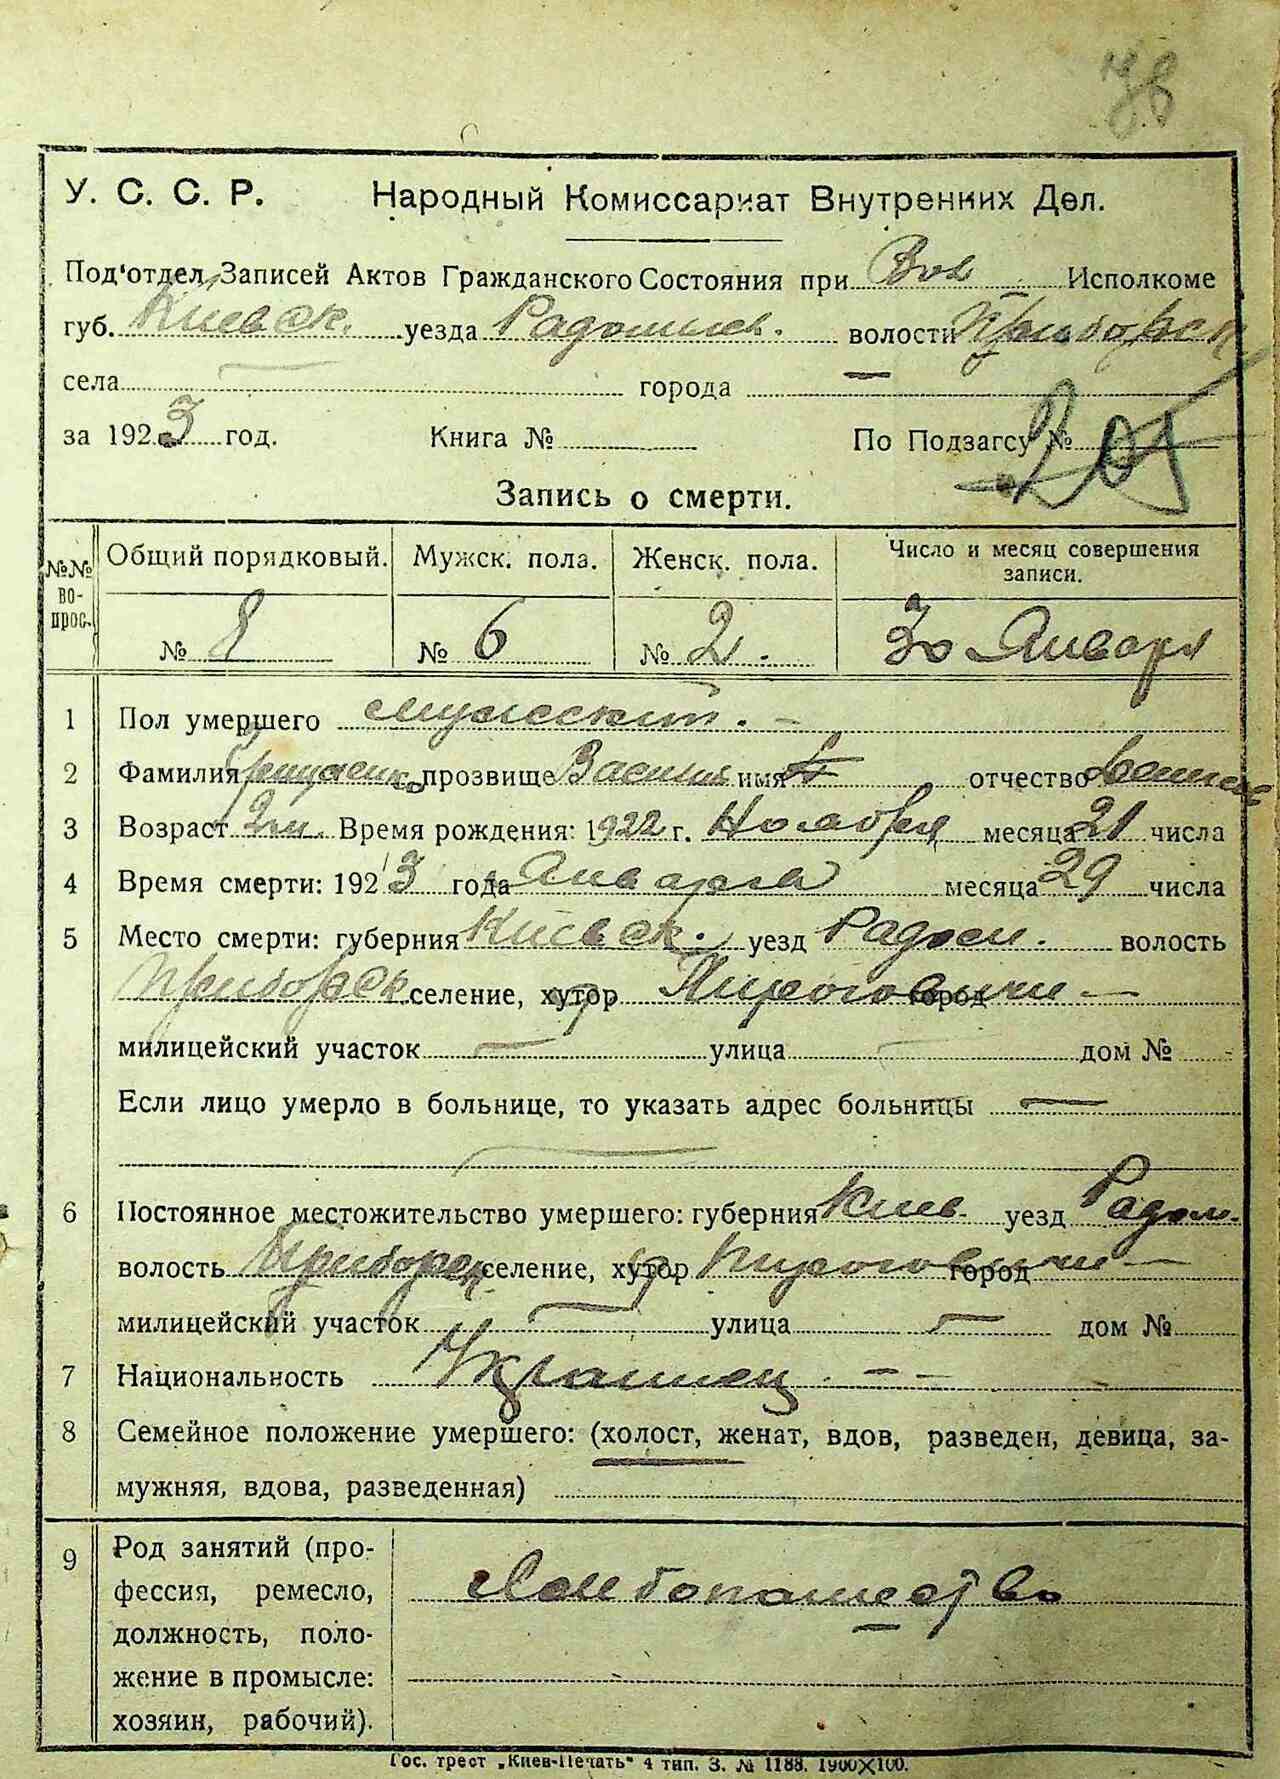 У. С. С. Р. Народный Комиссариат Внутренних Дел.
Под‘отдел Записей Актов Гражданского Состояния при Вол Исполкоме
губ. Киевск. уезда Радомысл. волости Приборск
села — города —
за 1923 год. Книга № По Подзагсу № 205
Запись о смерти.
№№ вопрос. Общий порядковый. Мужск. пола. Женск. пола. Число и месяц совершения записи.
№ 8 № 6 № 2. 30 Января
1 Пол умершего мужский. —
2 Фамилия прозвище Василий имя отчество
3 Возраст 2 м. Время рождения: 1922 г. Ноября месяца 21 числа
4 Время смерти: 1923 года Января месяца 29 числа
5 Место смерти: губерния Киевск. уезд Радом. волость
Приборск селение, хутор Пироговичи — город
милицейский участок — улица — дом № -
Если лицо умерло в больнице, то указать адрес больницы —
—
6 Постоянное местожительство умершего: губерния Киев. уезд Радом.
волость Приборск селение, хутор Пироговичи — город
милицейский участок — улица — дом №
7 Национальность Украинец. — —
8 Семейное положение умершего: (холост, женат, вдов, разведен, девица, за-
мужняя, вдова, разведенная)
9 Род занятий (про-
фессия, ремесло, Хлебопашество
должность, поло-
жение в промысле:
хозяин, рабочий).
Гос. трест „Киев-Печать“ 4 тип. З. № 1188. 1900×100.